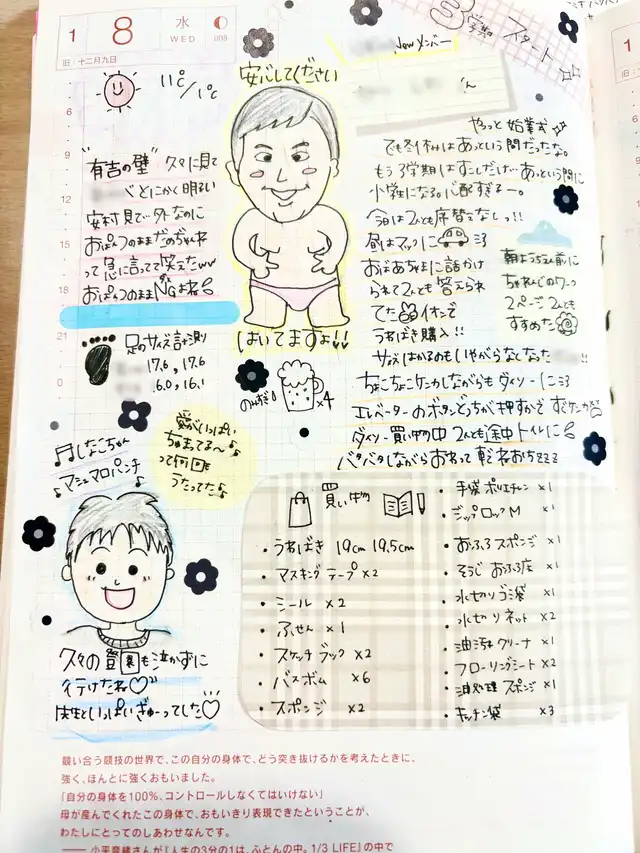 1 8 水 WED 008
旧:十二月九日
3学期 スタート
11℃/1℃
安心してください
はいてますよ!!
Newメンバー
"有吉の壁" 久々に見て
とにかく明るい
安村見て…外なのに
おぱんつのままだめぢゃんね
って急に言ってて笑えたww
おぱんつのままNGはね
6
9
12
15
18
21
0
足のサイズ計測
17.6, 17.6
16.1
のみすぎ! ×4
やっと始業式
でも冬休みはあっという間だったな。
もう3学期はすこしだけ…あっという間に
小学生になる。心配すぎるー。
今日は2人とも席替えなしっ!!
昼はマックに
おばあちゃまに話かけ
られて2人とも答えられ
てた イオンで
うわばき購入!!
サイズはかるのもいやがらなくなった!!
ちょこちょこケンカしながらもダイソーに
エレベーターのボタンどっちが押すかですぐケンカ
ダイソー買い物中2人とも途中トイレに
バタバタしながらおわって転ねおちzzz
朝ようちえん前に
ちゃれんじのワーク
2ページ2人とも
すすめた
♫しなこちゃん
♪マシュマロパンチ
愛がいっぱい
ちゅまてる〜♪
って何回も
うたってた♪
久々の登園も泣かずに
行けたね♡
先生といっぱいぎゅーってした♡
買い物
・うわばき 19cm 19.5cm
・マスキングテープ×2
・シール ×2
・ふせん ×1
・スケッチブック×2
・バスボム ×6
・スポンジ ×2
・手袋 ポリエチレン ×1
・ジップロックM ×1
・おふろスポンジ ×1
・そうじ おふろ床 ×1
・水切りゴミ袋 ×1
・水切りネット ×2
・油汚れクリーナ ×1
・フローリングシート×2
・スポンジ ×1
・キッチン袋 ×3
競い合う競技の世界で、この自分の身体で、どう突き抜けるかを考えたときに、
強く、ほんとに強くおもいました。
「自分の身体を100%、コントロールしなくてはいけない」
母が産んでくれたこの身体で、おもいきり表現できたということが、
わたしにとってのしあわせなんです。
―― 小平奈緒さんが『人生の3分の1は、ふとんの中。1/3 LIFE』の中で